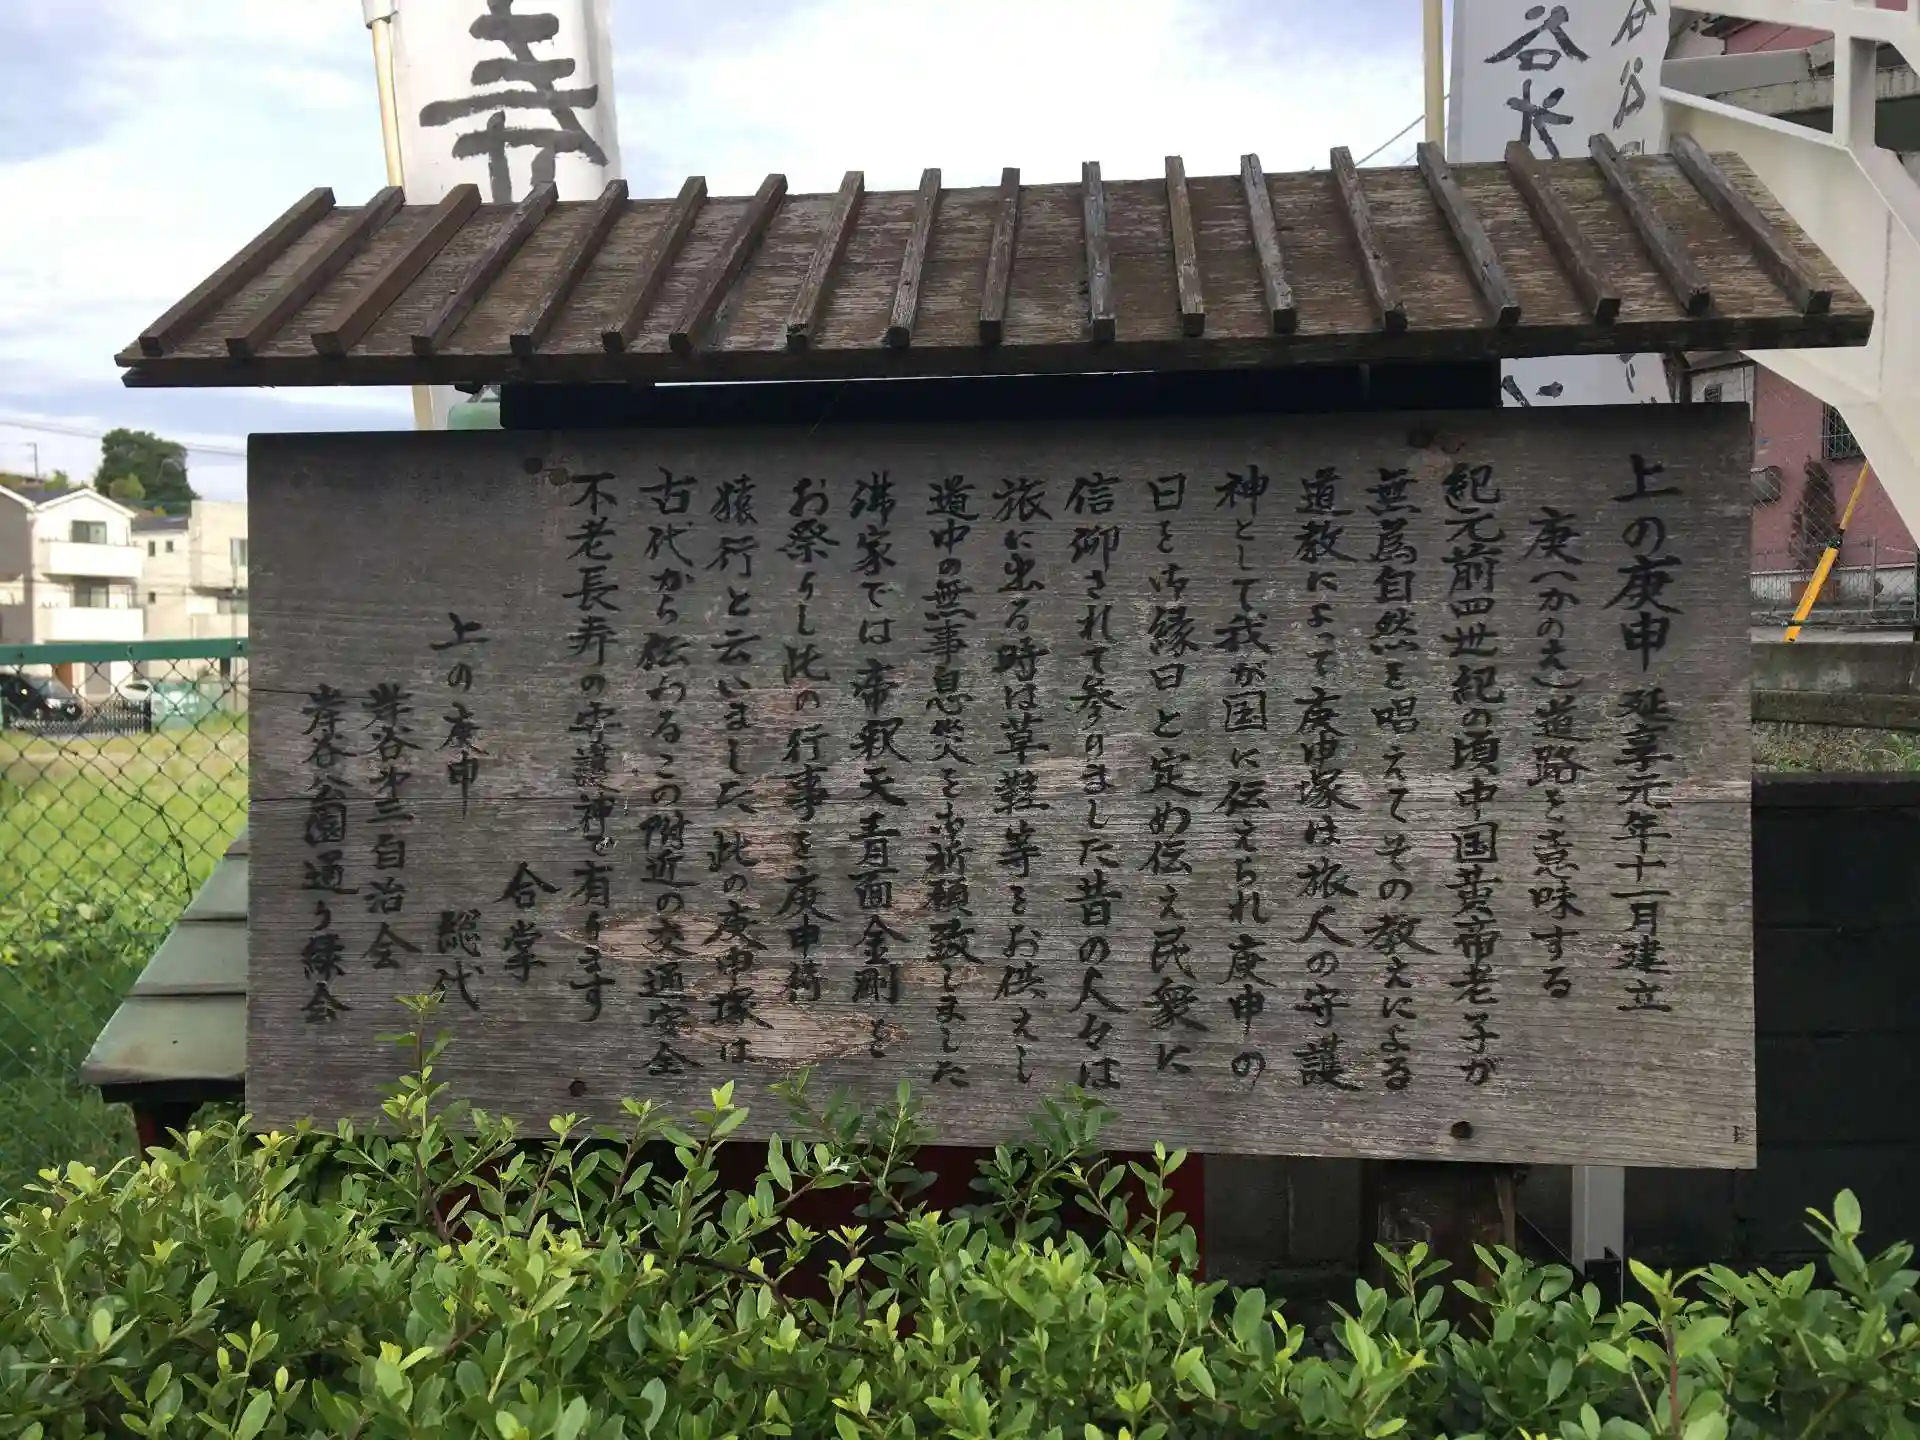 上の庚申 延享元年十一月建立
庚(かのえ)道路を意味する
紀元前四世紀の頃中国黄帝老子が
無為自然を唱えてその教えによる
道教によって庚申塚は旅人の守護
神として我が国に伝えられ庚申の
日を御縁日と定め伝え民衆に
信仰されて参りました昔の人々は
旅に出る時は草鞋等をお供えし
道中の無事息災を御祈願致しました
佛家では帝釈天青面金剛を
お祭りし此の行事を庚申待
猿行と云いました此の庚申塚は
古代から伝わるこの附近の交通安全
不老長寿の守護神で有ります
合掌
上の庚申 総代
岸谷第三自治会
岸谷公園通り緑会
寺
谷
水
谷